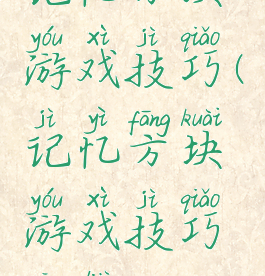 yóu xì jì qiǎo
游戏技巧(
jì yì fāng kuài
记忆方块
yóu xì jì qiǎo
游戏技巧